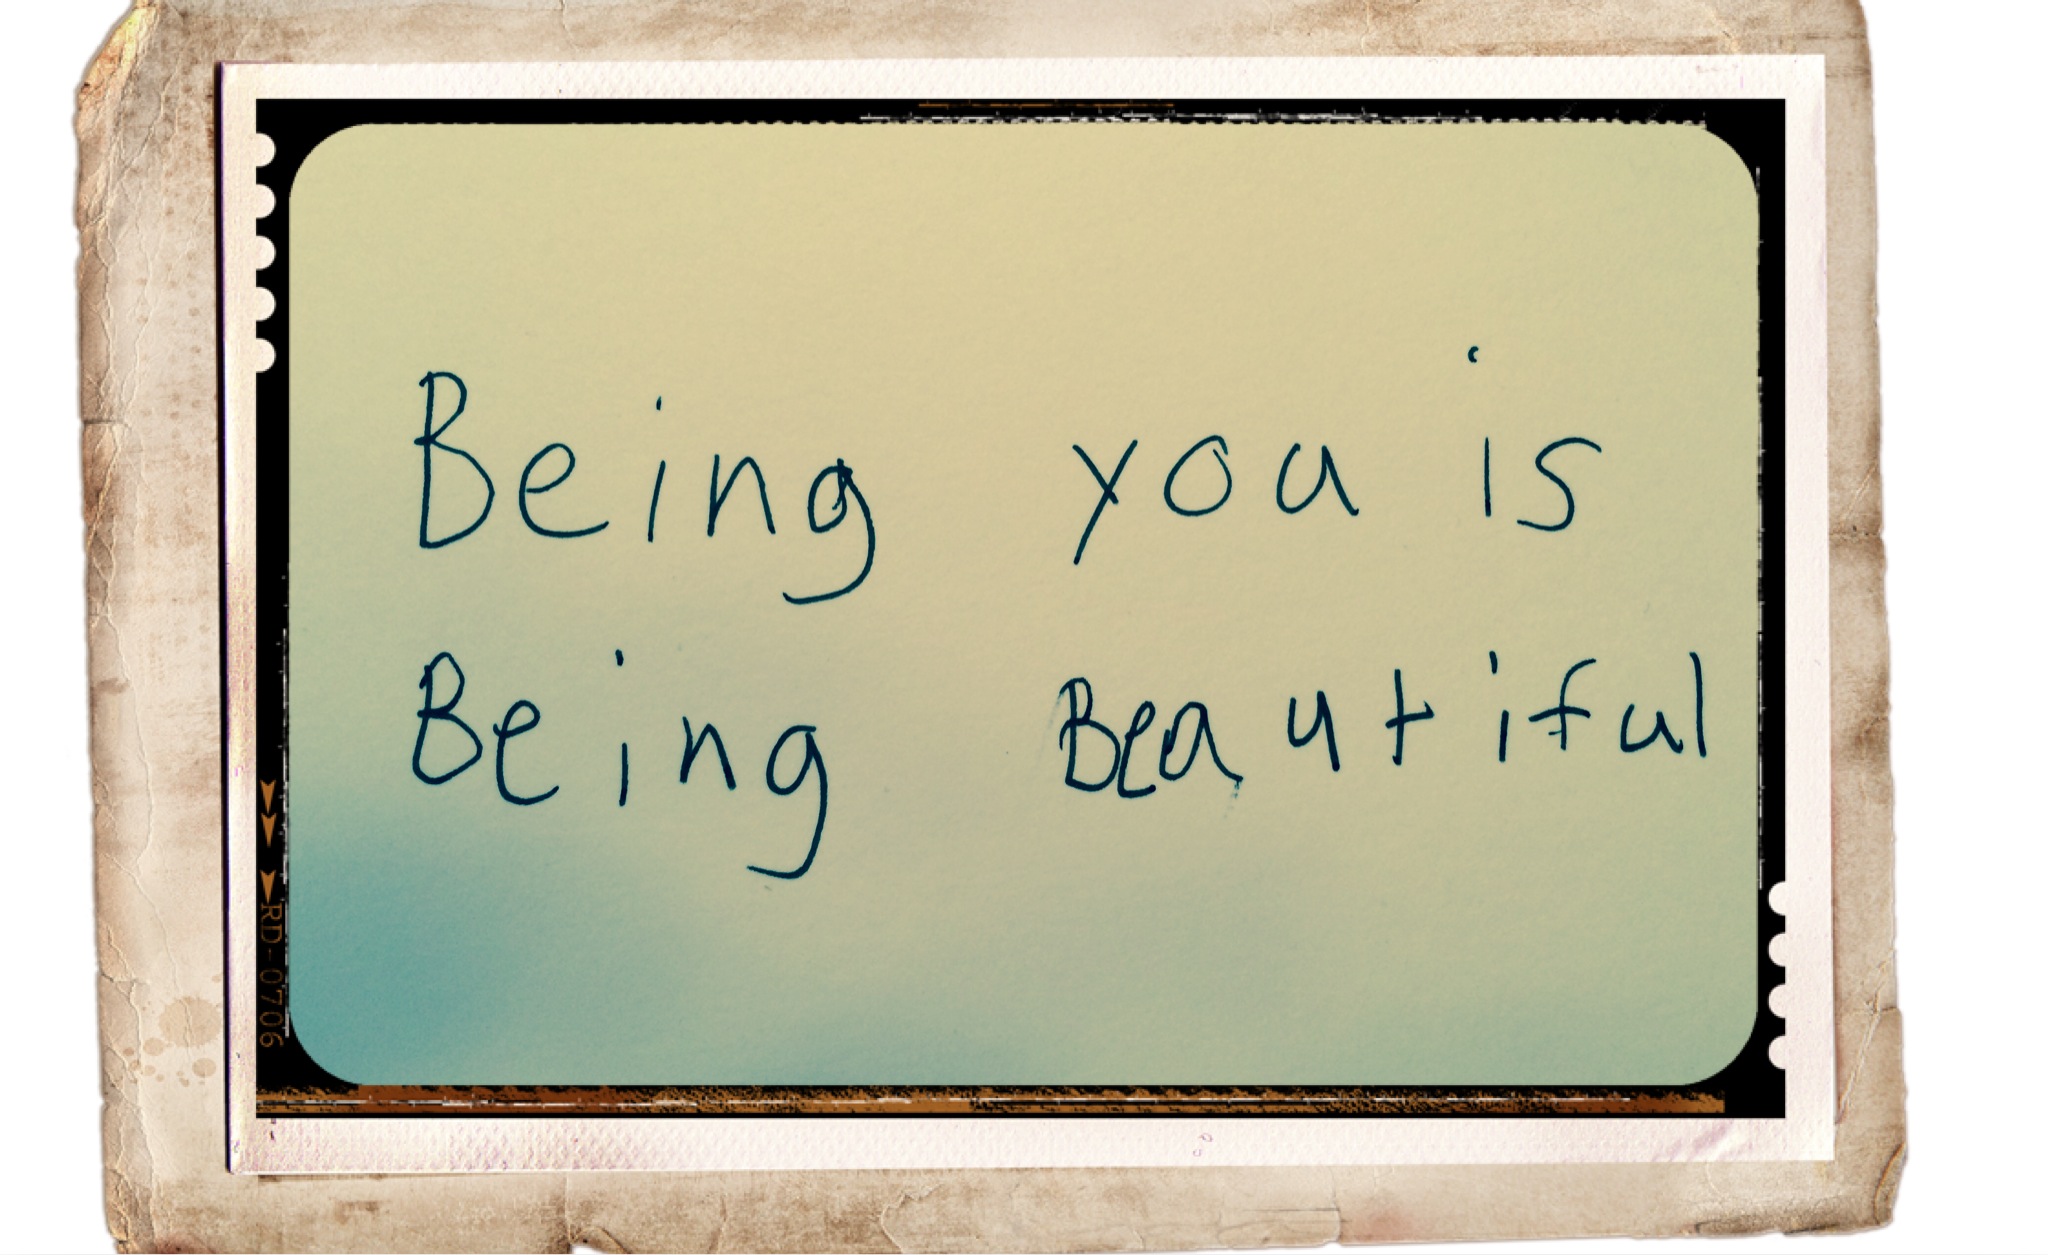 Being you is
Being Beautiful
RD-0706